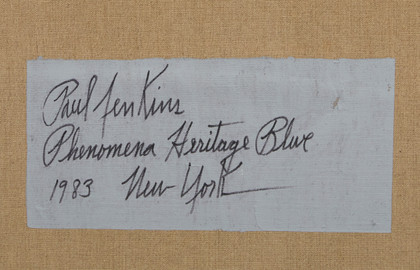 Paul Jenkins
Phenomena Heritage Blue
1983 New York